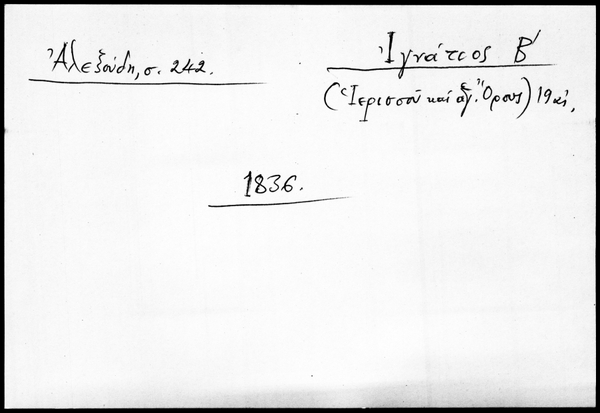 Ἀλεξούδη, σ. 242.
Ἰγνάτιος Β'
(Ἱερισσοῦ καί ἁγ. Ὄρους) 19 αἰ.
1836.